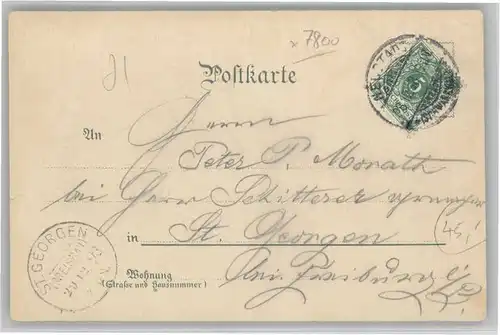 x 7800
Postkarte
An
Herrn
Peter P. Morath
bei Herrn Schitterer
in
St. Georgen
Wohnung
(Straße und Hausnummer)
bei Freiburg i/B
45,-
ST GEORGEN